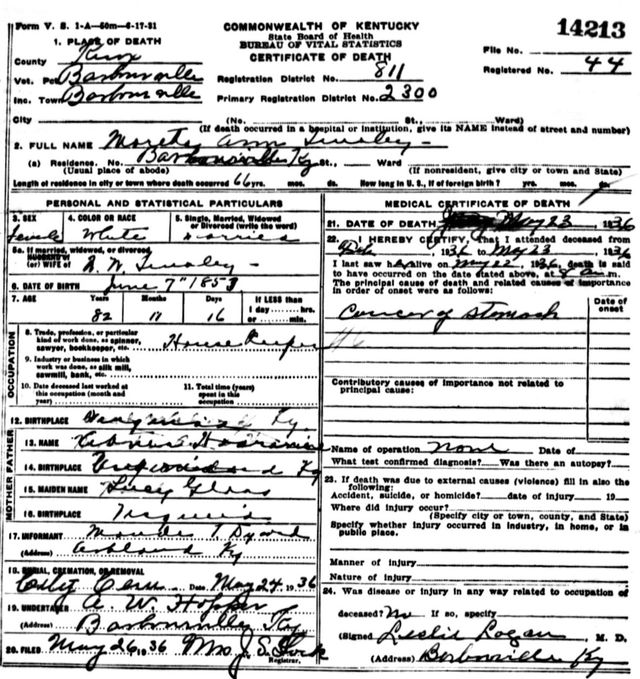 Form V. S. 1-A—50m—6-17-31
COMMONWEALTH OF KENTUCKY
State Board of Health
BUREAU OF VITAL STATISTICS
CERTIFICATE OF DEATH
14213
File No.
Registered No. 44
1. PLACE OF DEATH
County Knox
Vot. Pct. Barbourville
Inc. Town Barbourville
Registration District No. 811
Primary Registration District No. 2300
City (No. St., Ward)
(If death occurred in a hospital or institution, give its NAME instead of street and number)
2. FULL NAME Ann
(a) Residence. No. Barbourville Ky St., Ward
(Usual place of abode) (If nonresident, give city or town and State)
Length of residence in city or town where death occurred 66 yrs. mos. ds. How long in U. S., if of foreign birth? yrs. mos. ds.
PERSONAL AND STATISTICAL PARTICULARS
3. SEX Female
4. COLOR OR RACE White
5. Single, Married, Widowed or Divorced (write the word) Married
5a. If married, widowed, or divorced
HUSBAND of
(or) WIFE of
6. DATE OF BIRTH June 7" 1853
7. AGE Years Months Days If LESS than
82 11 16 1 day hrs.
or min.
OCCUPATION
8. Trade, profession, or particular
kind of work done, as spinner,
sawyer, bookkeeper, etc. House Keeper
9. Industry or business in which
work was done, as silk mill,
sawmill, bank, etc.
10. Date deceased last worked at
this occupation (month and
year)
11. Total time (years)
spent in this
occupation
12. BIRTHPLACE Ky.
FATHER
13. NAME
14. BIRTHPLACE Ky
MOTHER
15. MAIDEN NAME Lucy Glass
16. BIRTHPLACE Virginia
17. INFORMANT
(Address) Ashland Ky
18. BURIAL, CREMATION, OR REMOVAL
City Cem Date May 24 1936
19. UNDERTAKER A. W. Hopper
(Address) Barbourville Ky
20. FILED May 26 1936 Mrs J. S.
Registrar.
MEDICAL CERTIFICATE OF DEATH
21. DATE OF DEATH May 23 1936
22. I HEREBY CERTIFY, That I attended deceased from
1936 to May 23, 1936
I last saw her alive on May 22, 1936 death is said
to have occurred on the date stated above, at 8 a.m.
The principal cause of death and related causes of importance
in order of onset were as follows:
Date of
onset
Cancer of stomach
46
Contributory causes of importance not related to
principal cause:
Name of operation none
What test confirmed diagnosis? Was there an autopsy?
23. If death was due to external causes (violence) fill in also the
following:
Accident, suicide, or homicide? date of injury 19
Where did injury occur?
(Specify city or town, county, and State)
Specify whether injury occurred in industry, in home, or in
public place.
Manner of injury
Nature of injury
24. Was disease or injury in any way related to occupation of
deceased? No If so, specify
(Signed Leslie Logan M. D.
(Address) Barbourville Ky